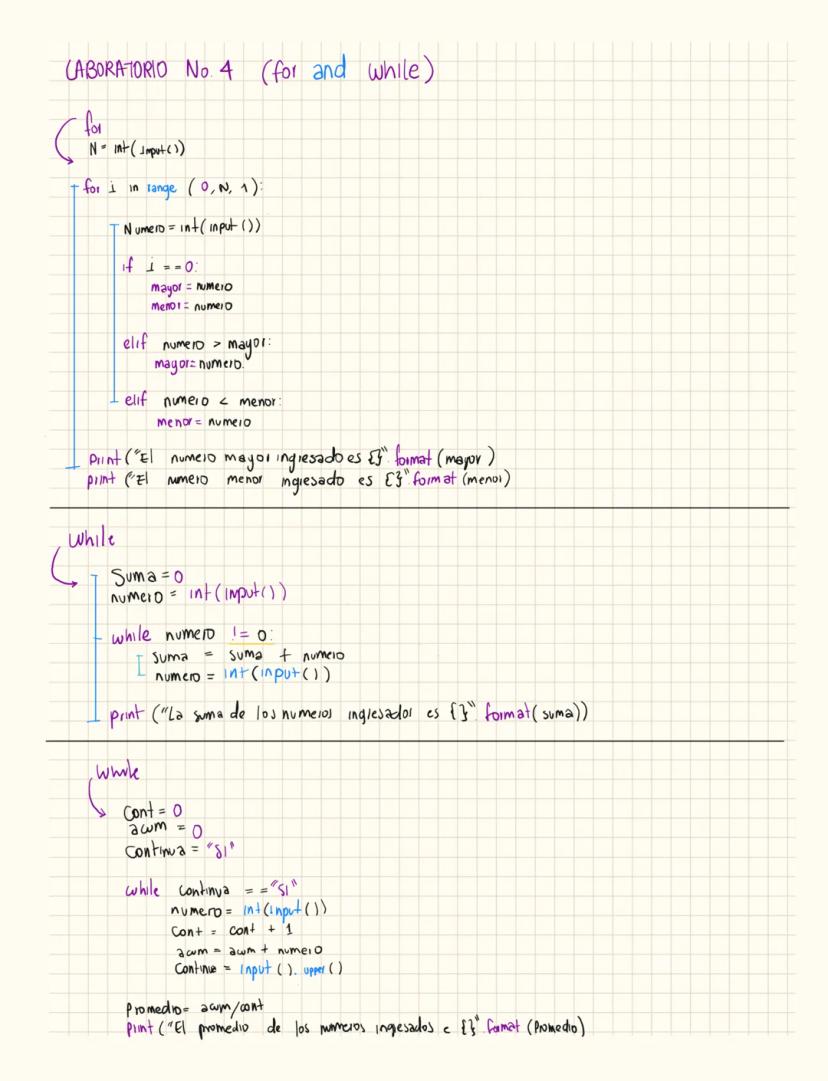 LABORATORIO No. 4 (for and while)
for
N = int(input())
for i in range (0, N, 1):
Numero = int(input())
if i == 0:
mayor = numero
menor = numero
elif numero > mayor:
mayor = numero.
elif numero < menor:
menor = numero
print ("El numero mayor ingresado es {}".format (mayor)
print ("El numero menor ingresado es {}".format (menor)
While
Suma = 0
numero = int(input())
while numero != 0:
suma = suma + numero
numero = int(input())
print ("La suma de los numeros ingresados es {}".format(suma))
While
Cont = 0
acum = 0
Continua = "SI"
while continua == "SI"
numero = int(input())
Cont = cont + 1
acum = acum + numero
Continua = input().upper()
Promedio = acum/cont
print ("El promedio de los numeros ingresados e {}".format (Promedio)